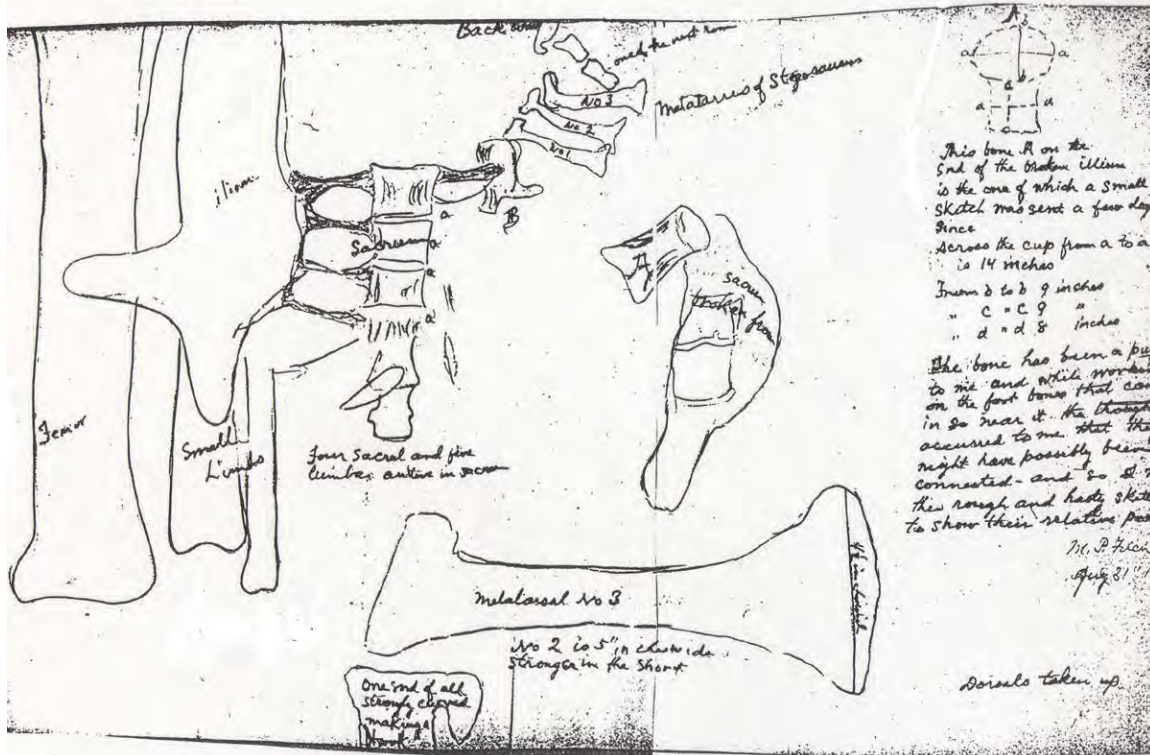 Back
one in the next room
Metatarsus of Stegosaurus
No 3
No 2
No 1
B
ilium
Sacrum
a
a
a
a
Femor
Small
Limbs
Four Sacral and five
lumbar entire in sacrum
A
sacrum
broken from
Metatarsal No 3
No 2 is 5" in
Stronger in the Short
One end of all
strongly curved
making a
hook
A
b
a a
b
d d
This bone A on the
End of the broken illium
is the one of which a small
Sketch was sent a few day
Since
Across the cup from a to a
is 14 inches
From b to b 9 inches
" c " c 9 "
" d " d 8 inches
The bone has been a
to me and while workin
on the foot bones that
in so near it the thought
accurred to me that
might have possibly been
connected - and so I
this rough and hasty
to show their relative
M. P.
Aug 31"
Dorsals taken up